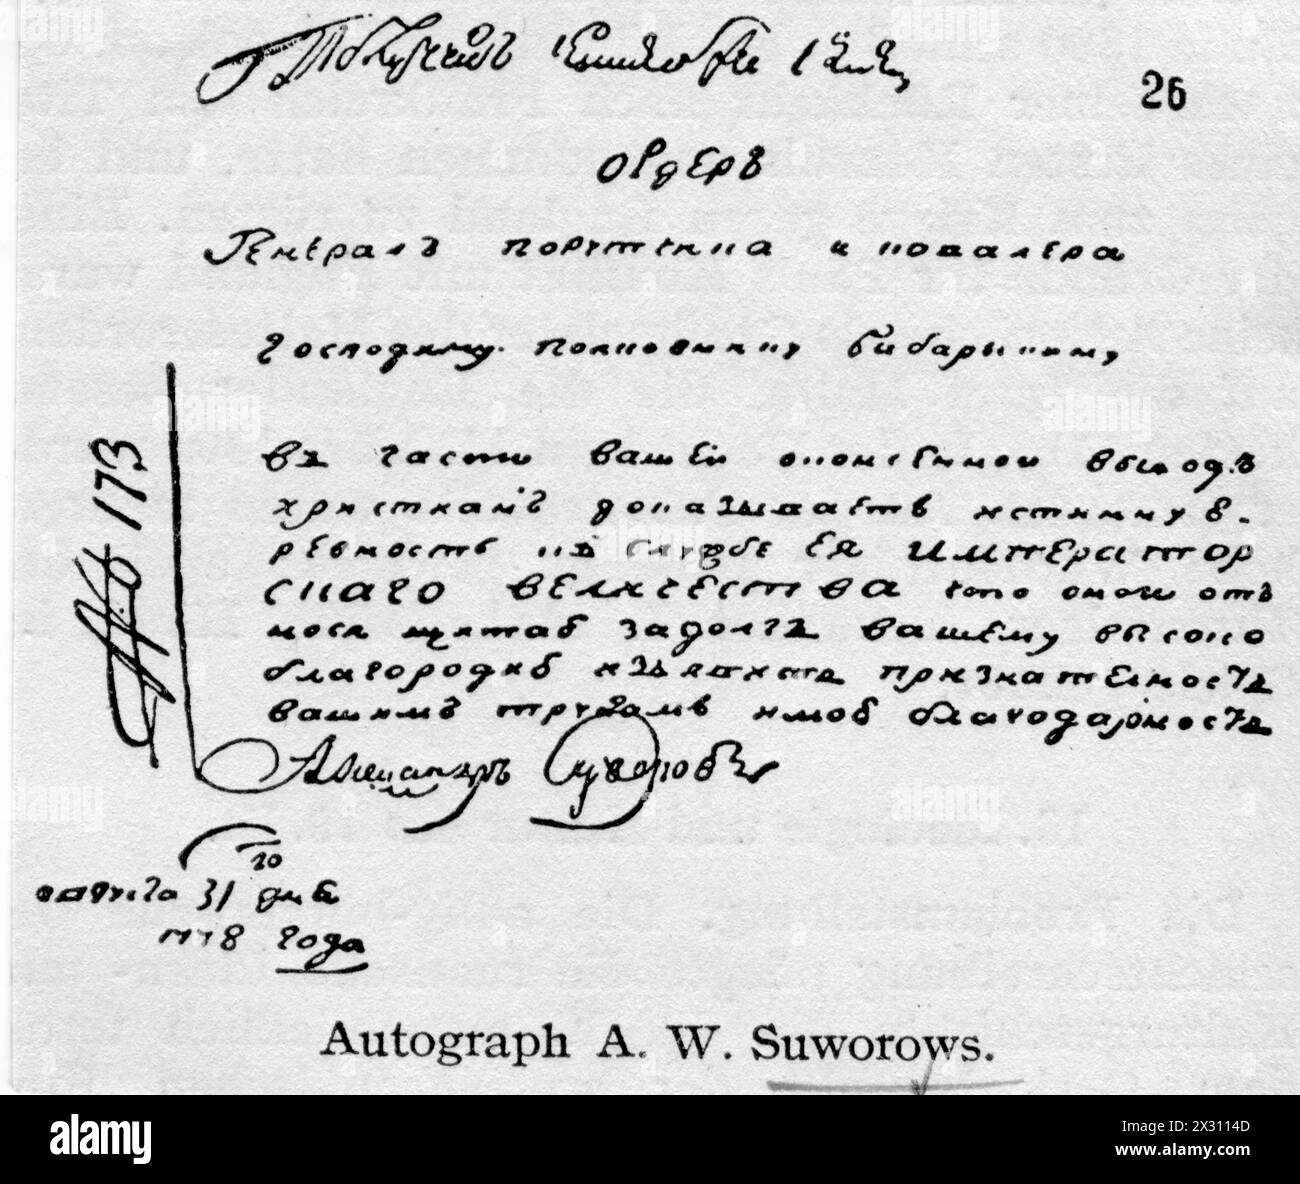 26
ордеръ
Генералъ порутчика и кавалера
господину полковнику бибарыкину
въ части вашей оконченной выходъ
христианъ доказываетъ истинну в.
ревность къ службе ея император
скаго величества того отъ
нося задолгъ вашему высоко
благородию изъявить признательность
вашимъ трудамъ благодарность
Александръ Суворовъ
№ 173
20
августа 31 дня
1778 года
Autograph A. W. Suworows.